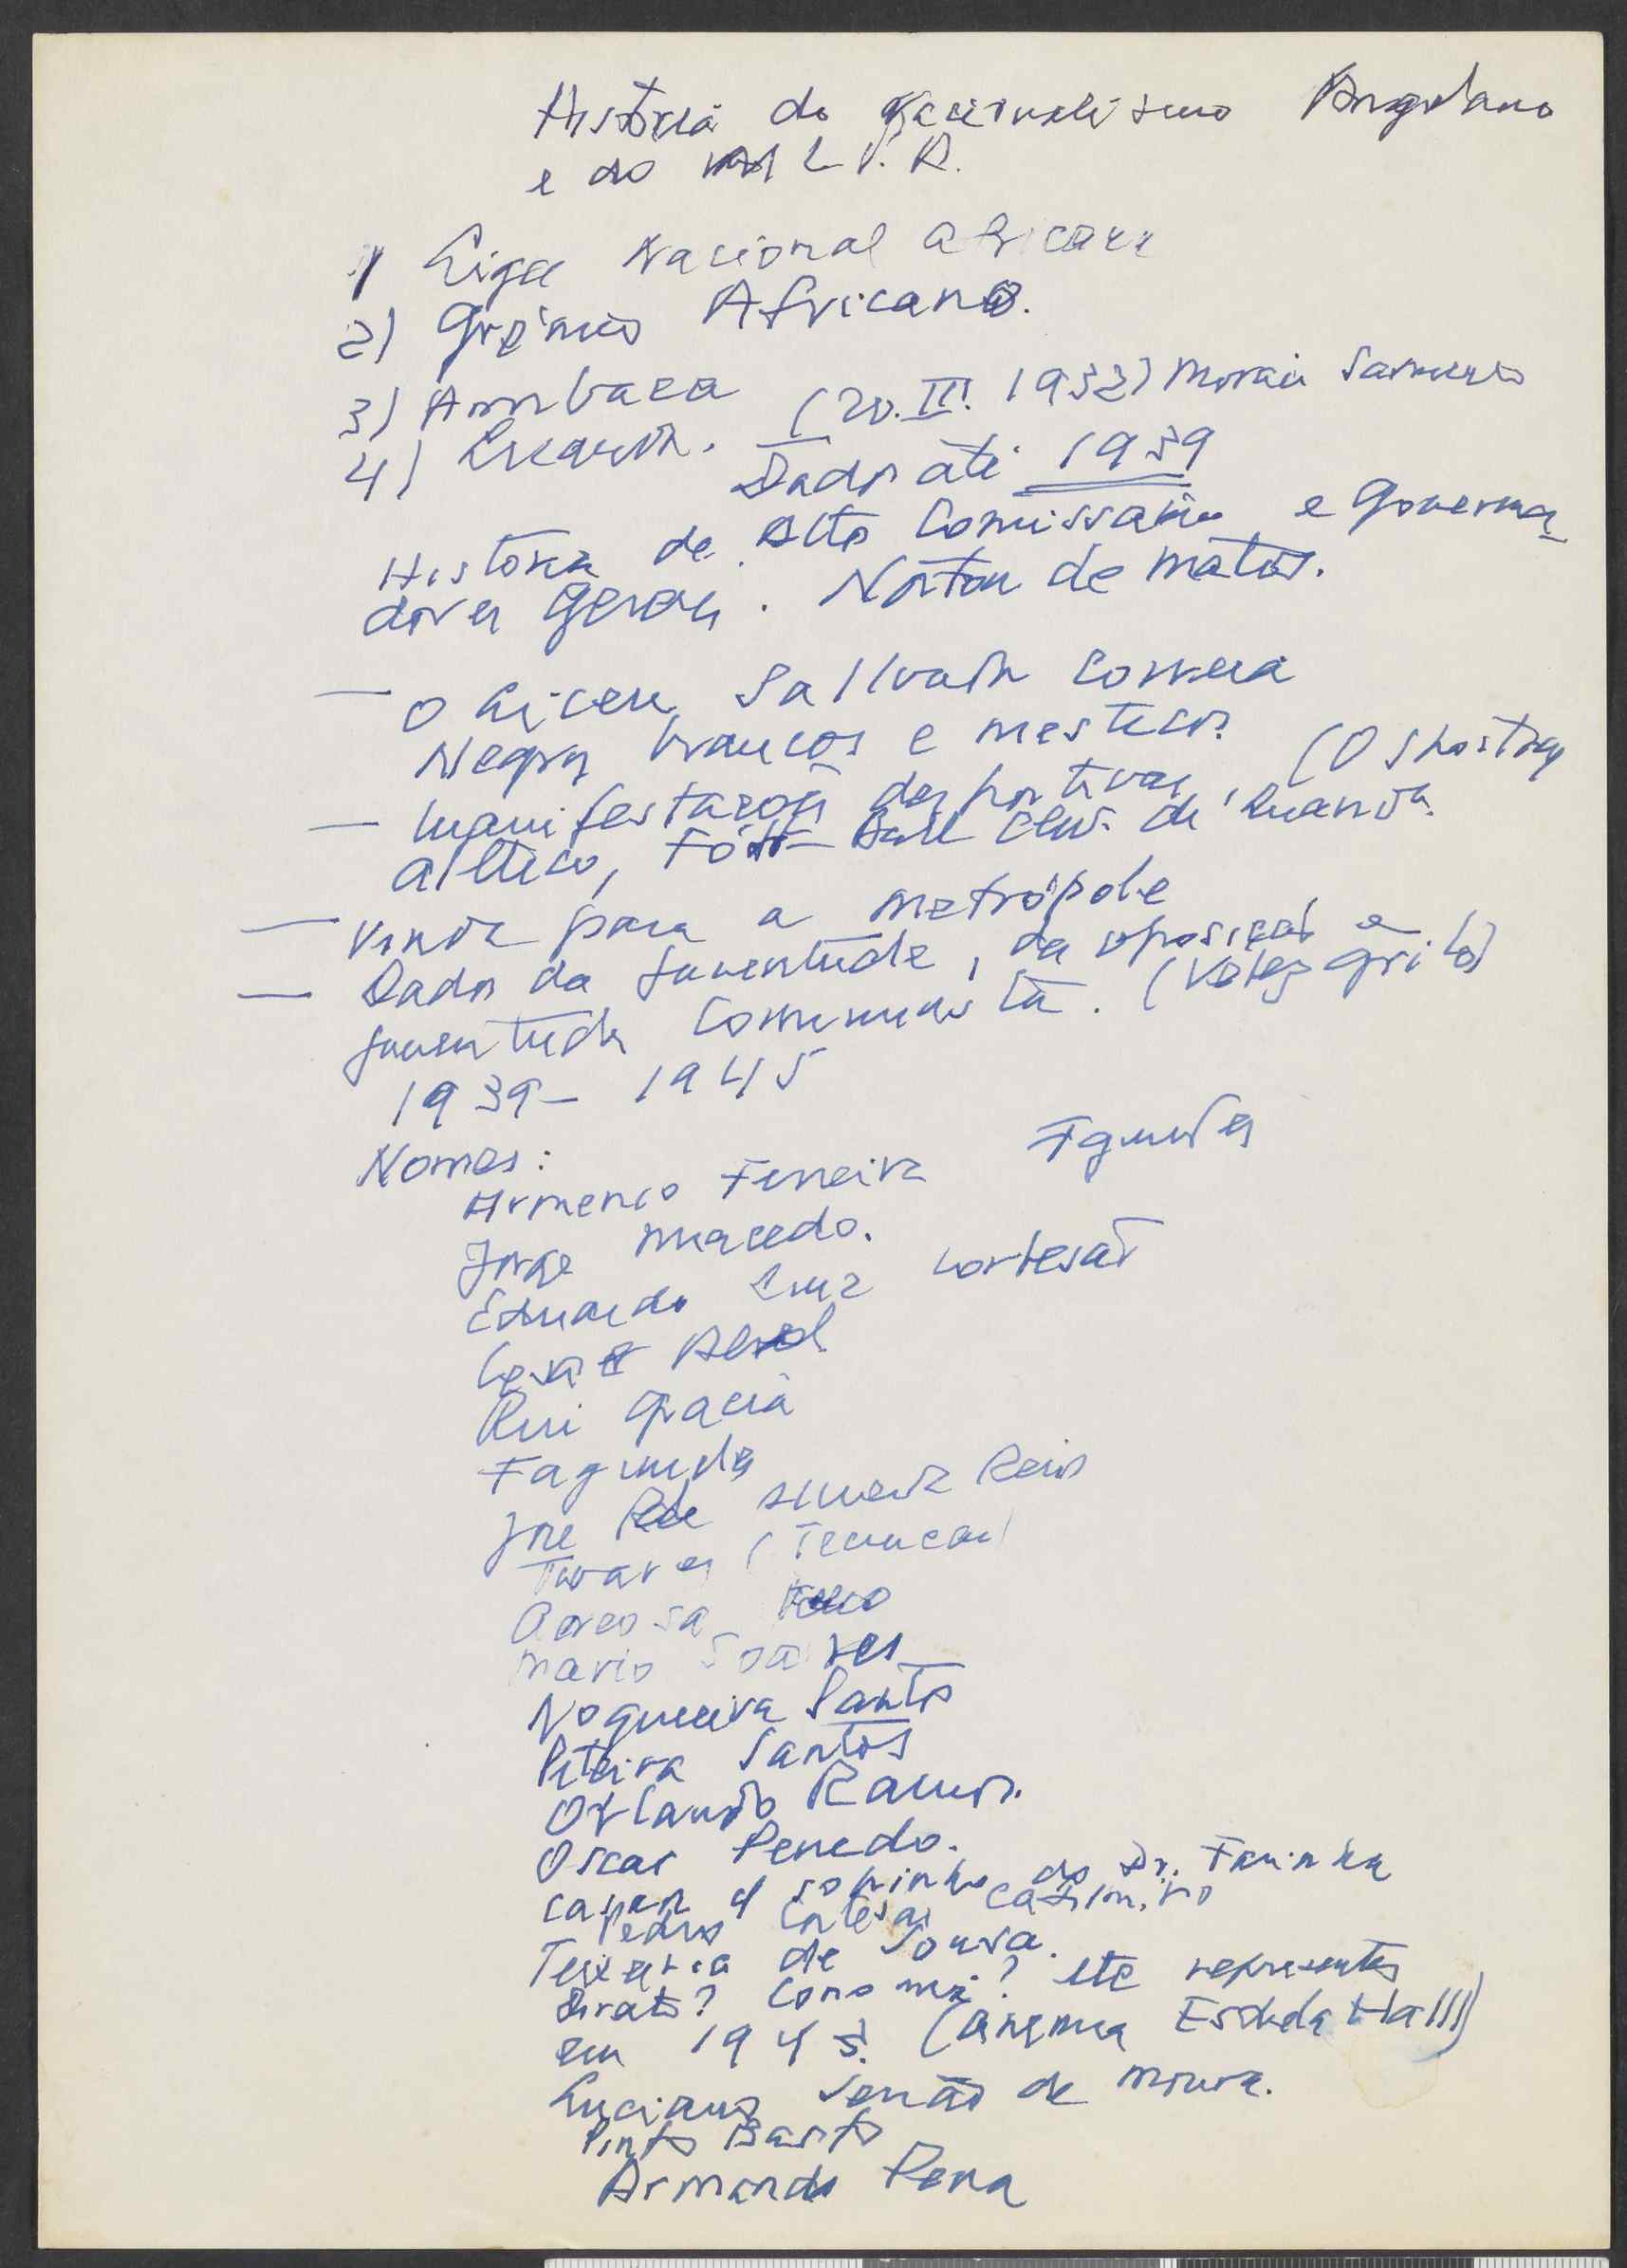 História do Nacionalismo Angolano
e do M.P.L.A.
1 Liga Nacional Africana
2) Grémio Africano.
3) Ambaca
4) Luanda. (20. III. 1932) Morais Sarmento
Dados até 1939
História de Alto Comissário e Governa
dores Gerais. Norton de Matos.
— O Liceu Salvador Correia
Negros, brancos e mestiços.
— Manifestações desportivas, (O Sporting
Atlético, Foot-Ball Club de Luanda.
— Vinda para a metrópole
— Dados da Juventude, da oposição e
Juventude Comunista. (Velez Grilo)
1939 - 1945
Nomes:
Armenio Ferreira Fagundes
Jorge Macedo.
Eduardo Cruz Cortesão
Abel
Rui Gracia
Fagundes
José Almeida Reis
Tavares (Técnico)
Areosa Feio
Mario Soares
Nogueira Santos
Piteira Santos
Orlando Ramos.
Oscar Penedo.
sobrinho do Dr. Farinha
Pedro Cortesão Casimiro
Teixeira de Sousa.
Como me? ete representes
em 1945.
Luciano Serrão de Moura.
Pinto Basto
Armando Pena